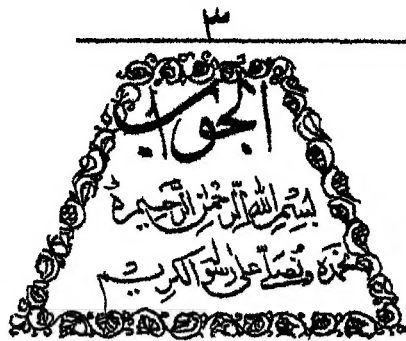 ۳
الجواب
بسم الله الرحمن الرحیم
نحمده ونصلی علی رسوله الکریم